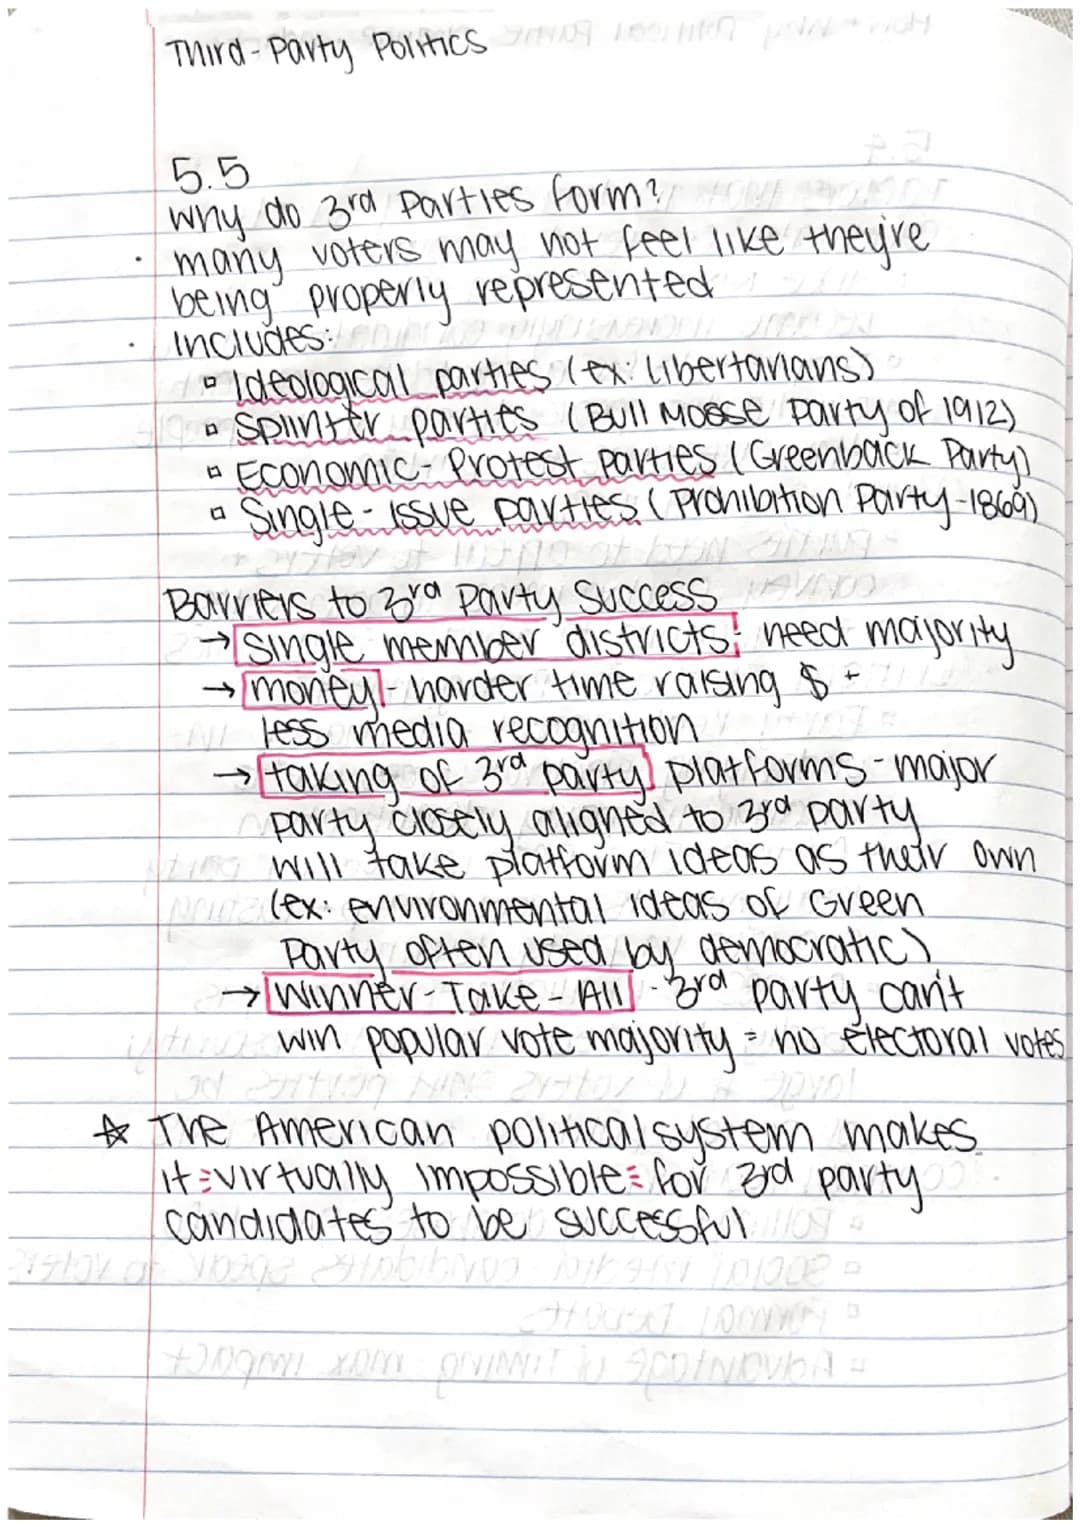 Third-Party Politics
5.5
why do 3rd Parties form?
· many voters may not feel like they're
being properly represented
· Includes:
▫ Ideological parties (ex: Libertarians)
▫ Splinter parties (Bull Moose Party of 1912)
▫ Economic-Protest parties (Greenback Party)
▫ Single-Issue parties (Prohibition Party-1869)
Barriers to 3rd Party Success
→ single member districts: need majority
→ money - harder time raising $ +
less media recognition
→ taking of 3rd party platforms - major
party closely aligned to 3rd party
will take platform ideas as their own
(ex: environmental ideas of Green
Party often used by democratic)
→ Winner-Take-All - 3rd party can't
win popular vote majority = no electoral votes
☆ The American political system makes
it virtually impossible for 3rd party
candidates to be successful